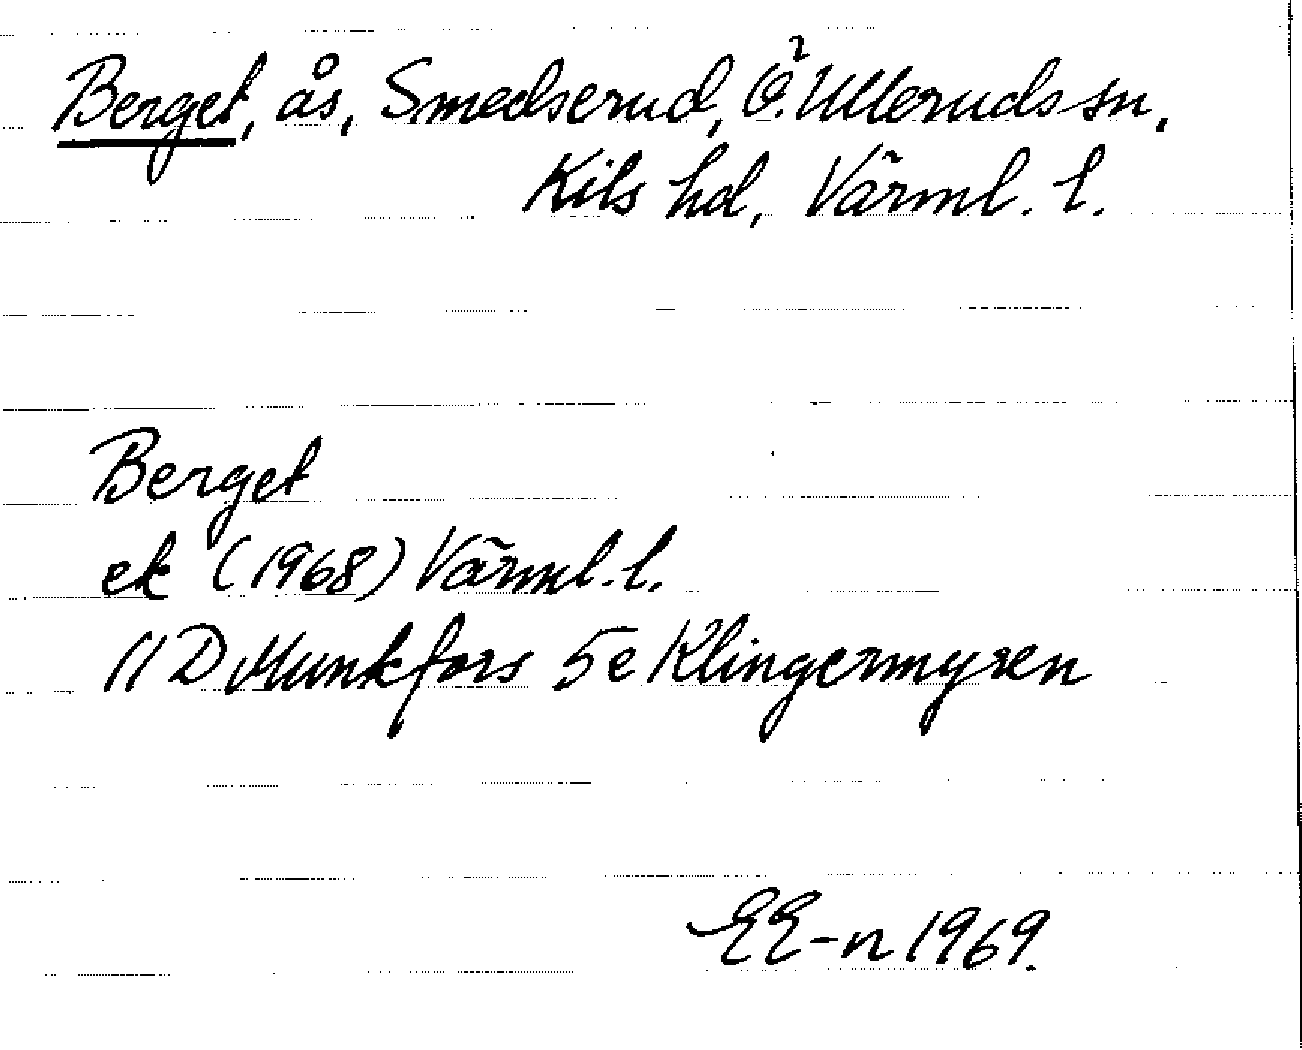 Berget, ås, Smedserud, Ö. Ulleruds sn,
Kils hd, Värml. l.
Berget
ek (1968) Värml. l.
11 D Munkfors 5e Klingermyren
EE-n 1969.